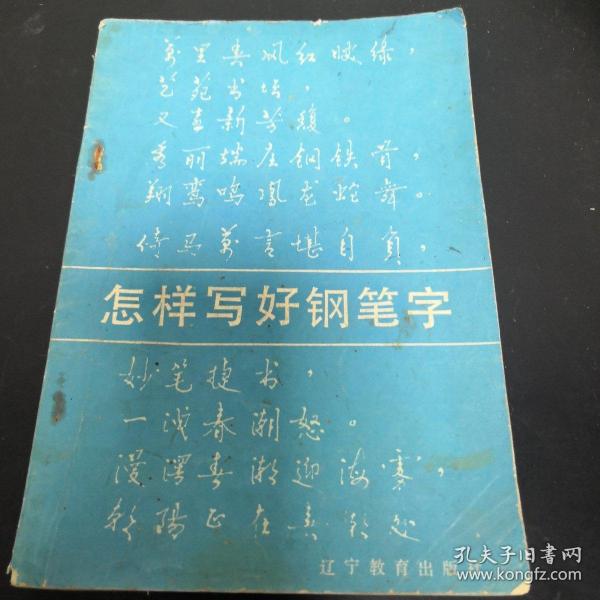 万里春风红映绿，
艺苑书坛，
又喜新芳馥。
秀丽端庄钢铁骨，
翔鸾鸣凤龙蛇舞。
倚马万言堪自负，
怎样写好钢笔字
妙笔捷书，
一派春潮怒。
漫谓春潮迎海
朝阳正在春潮处
辽宁教育出版社
孔夫子旧书网
www.kongfz.com